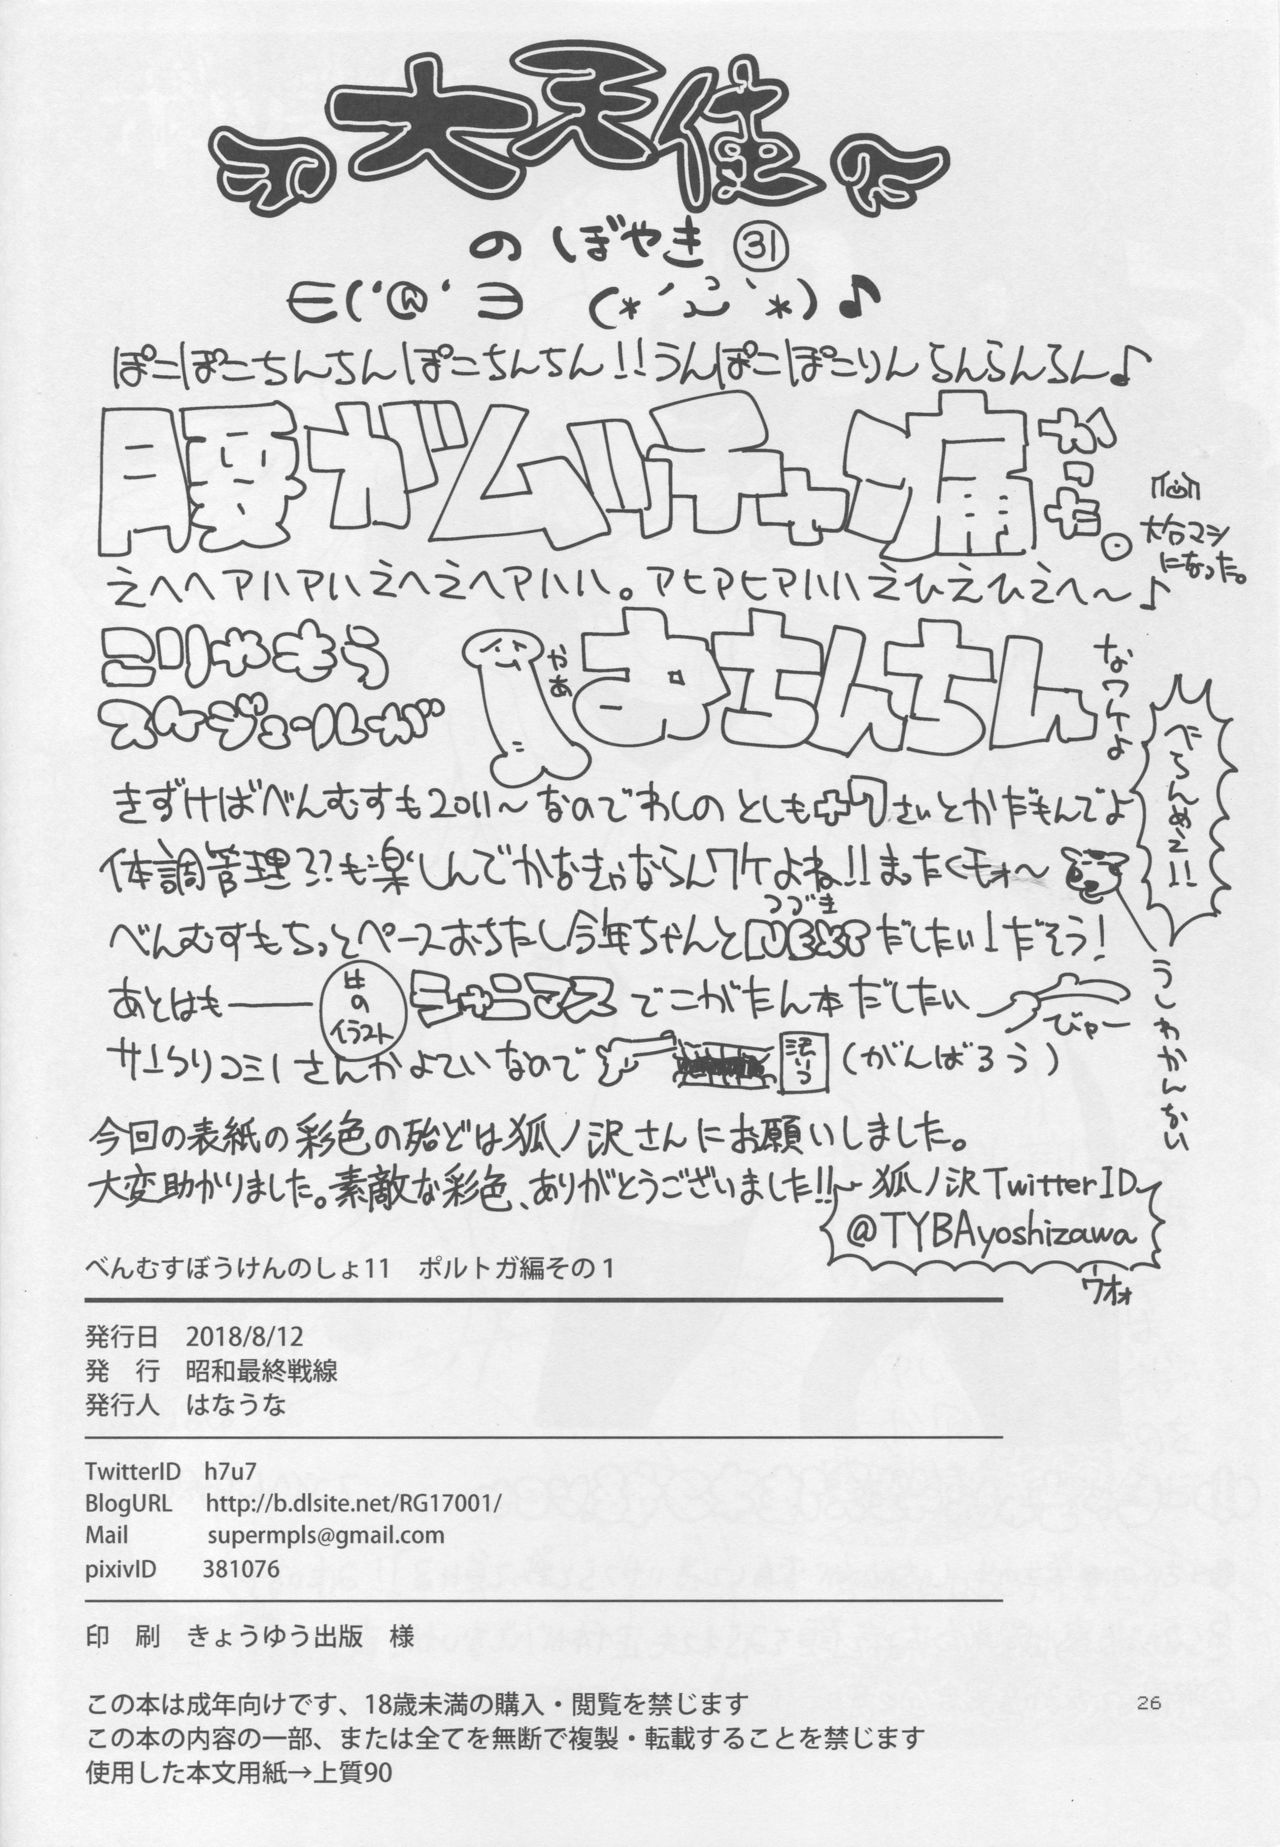 大天使
のぼやき ㉛
∈('@'∋ (*´ ｀*)♪
ぽこぽこちんちんぽこちんちん!!うんぽこぽこりんらんらんらん♪
腰がムッチャ痛かった。
大分マシ
になった。
えへへアハアハえへえへアハハハ。アヒアヒアハハえひえひえへ〜♪
こりゃもう
スケジュールが
やあ
おちんちん
なワケよ
べらんめえ!!
きずけばべんむすも2011〜なのでわしのとしも47さいとかだもんでよ
体調管理??も楽しんでかなきゃならんワケよね!!まったくモォ〜
つづき
べんむすもちっとペースおちたし今年ちゃんとNEXTだしたい!だそう!
うしわかんない
あとはも――
比の
イラスト
シャニマスでこがたん本だしたい
びゃー
サークりコミ1さんかよていなので
(がんばろう)
今回の表紙の彩色の殆どは狐ノ沢さんにお願いしました。
大変助かりました。素敵な彩色、ありがとうございました!!
狐ノ沢TwitterID
@TYBAyoshizawa
ワオォ
べんむすぼうけんのしょ11　ポルトガ編その1
発行日　2018/8/12
発　行　昭和最終戦線
発行人　はなうな
TwitterID　h7u7
BlogURL　http://b.dlsite.net/RG17001/
Mail　supermpls@gmail.com
pixivID　381076
印　刷　きょうゆう出版　様
この本は成年向けです、18歳未満の購入・閲覧を禁じます
この本の内容の一部、または全てを無断で複製・転載することを禁じます
使用した本文用紙→上質90
26